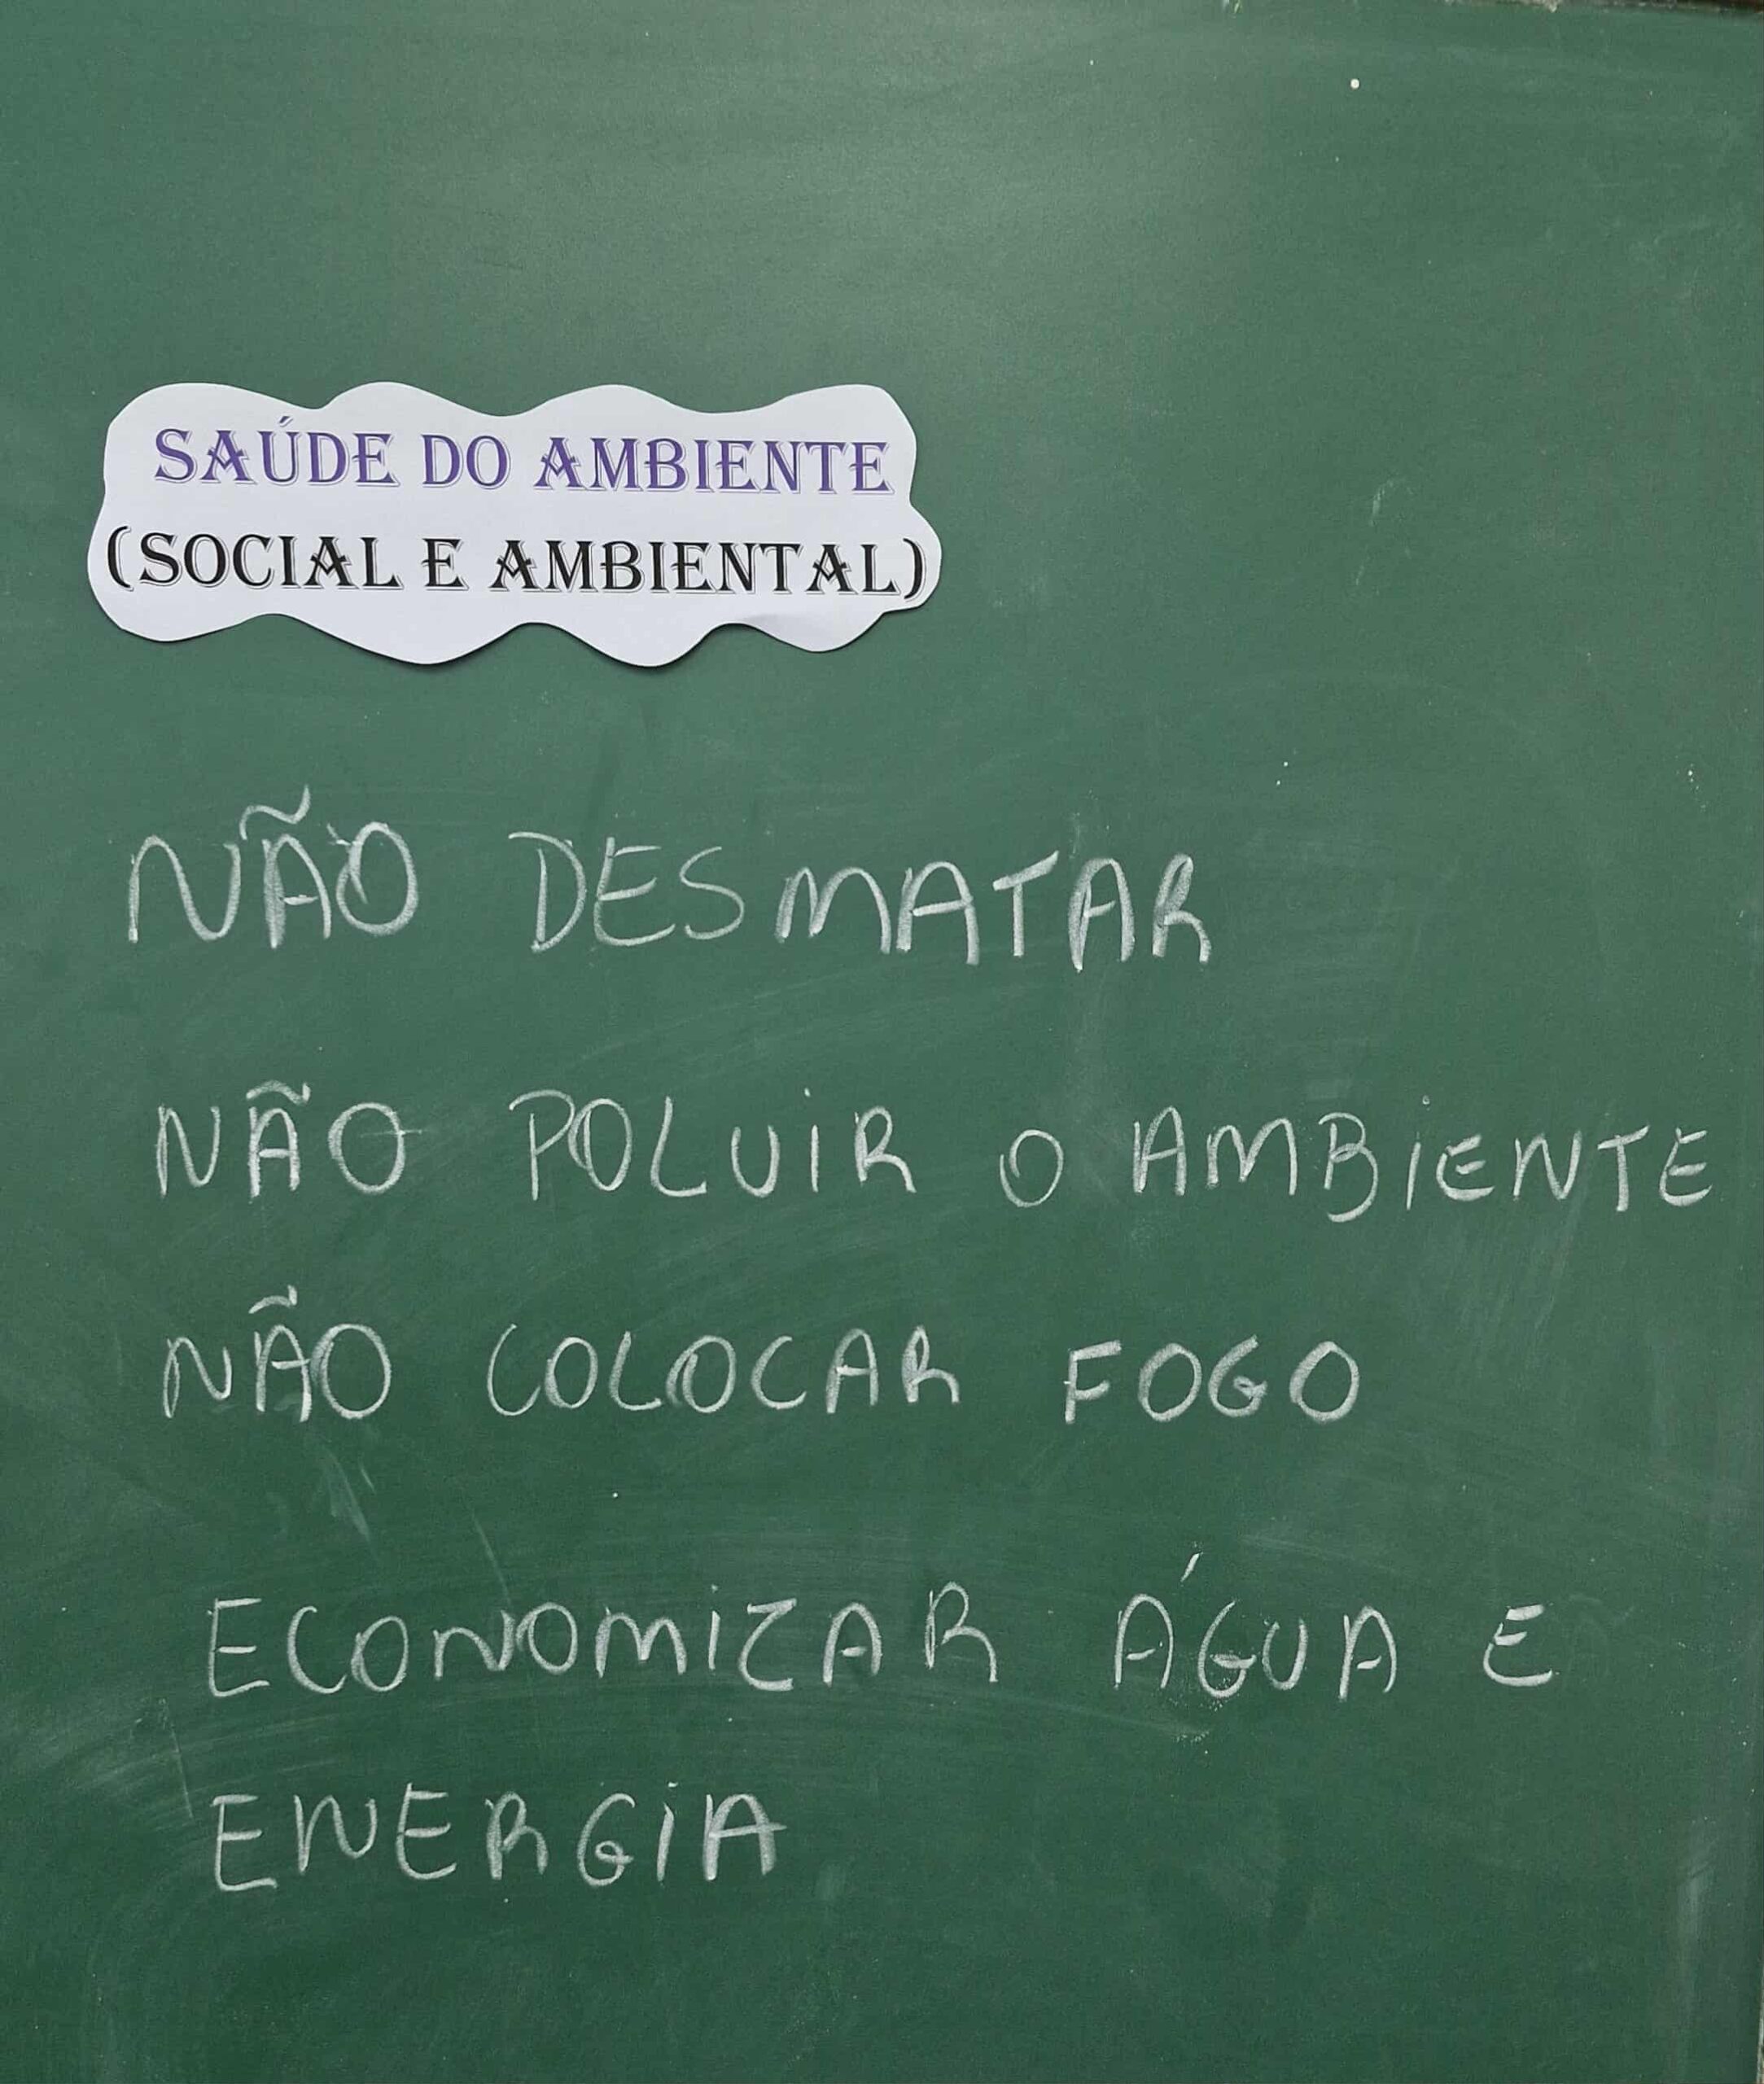 SAÚDE DO AMBIENTE
(SOCIAL E AMBIENTAL)
NÃO DESMATAR
NÃO POLUIR O AMBIENTE
NÃO COLOCAR FOGO
ECONOMIZAR ÁGUA E
ENERGIA